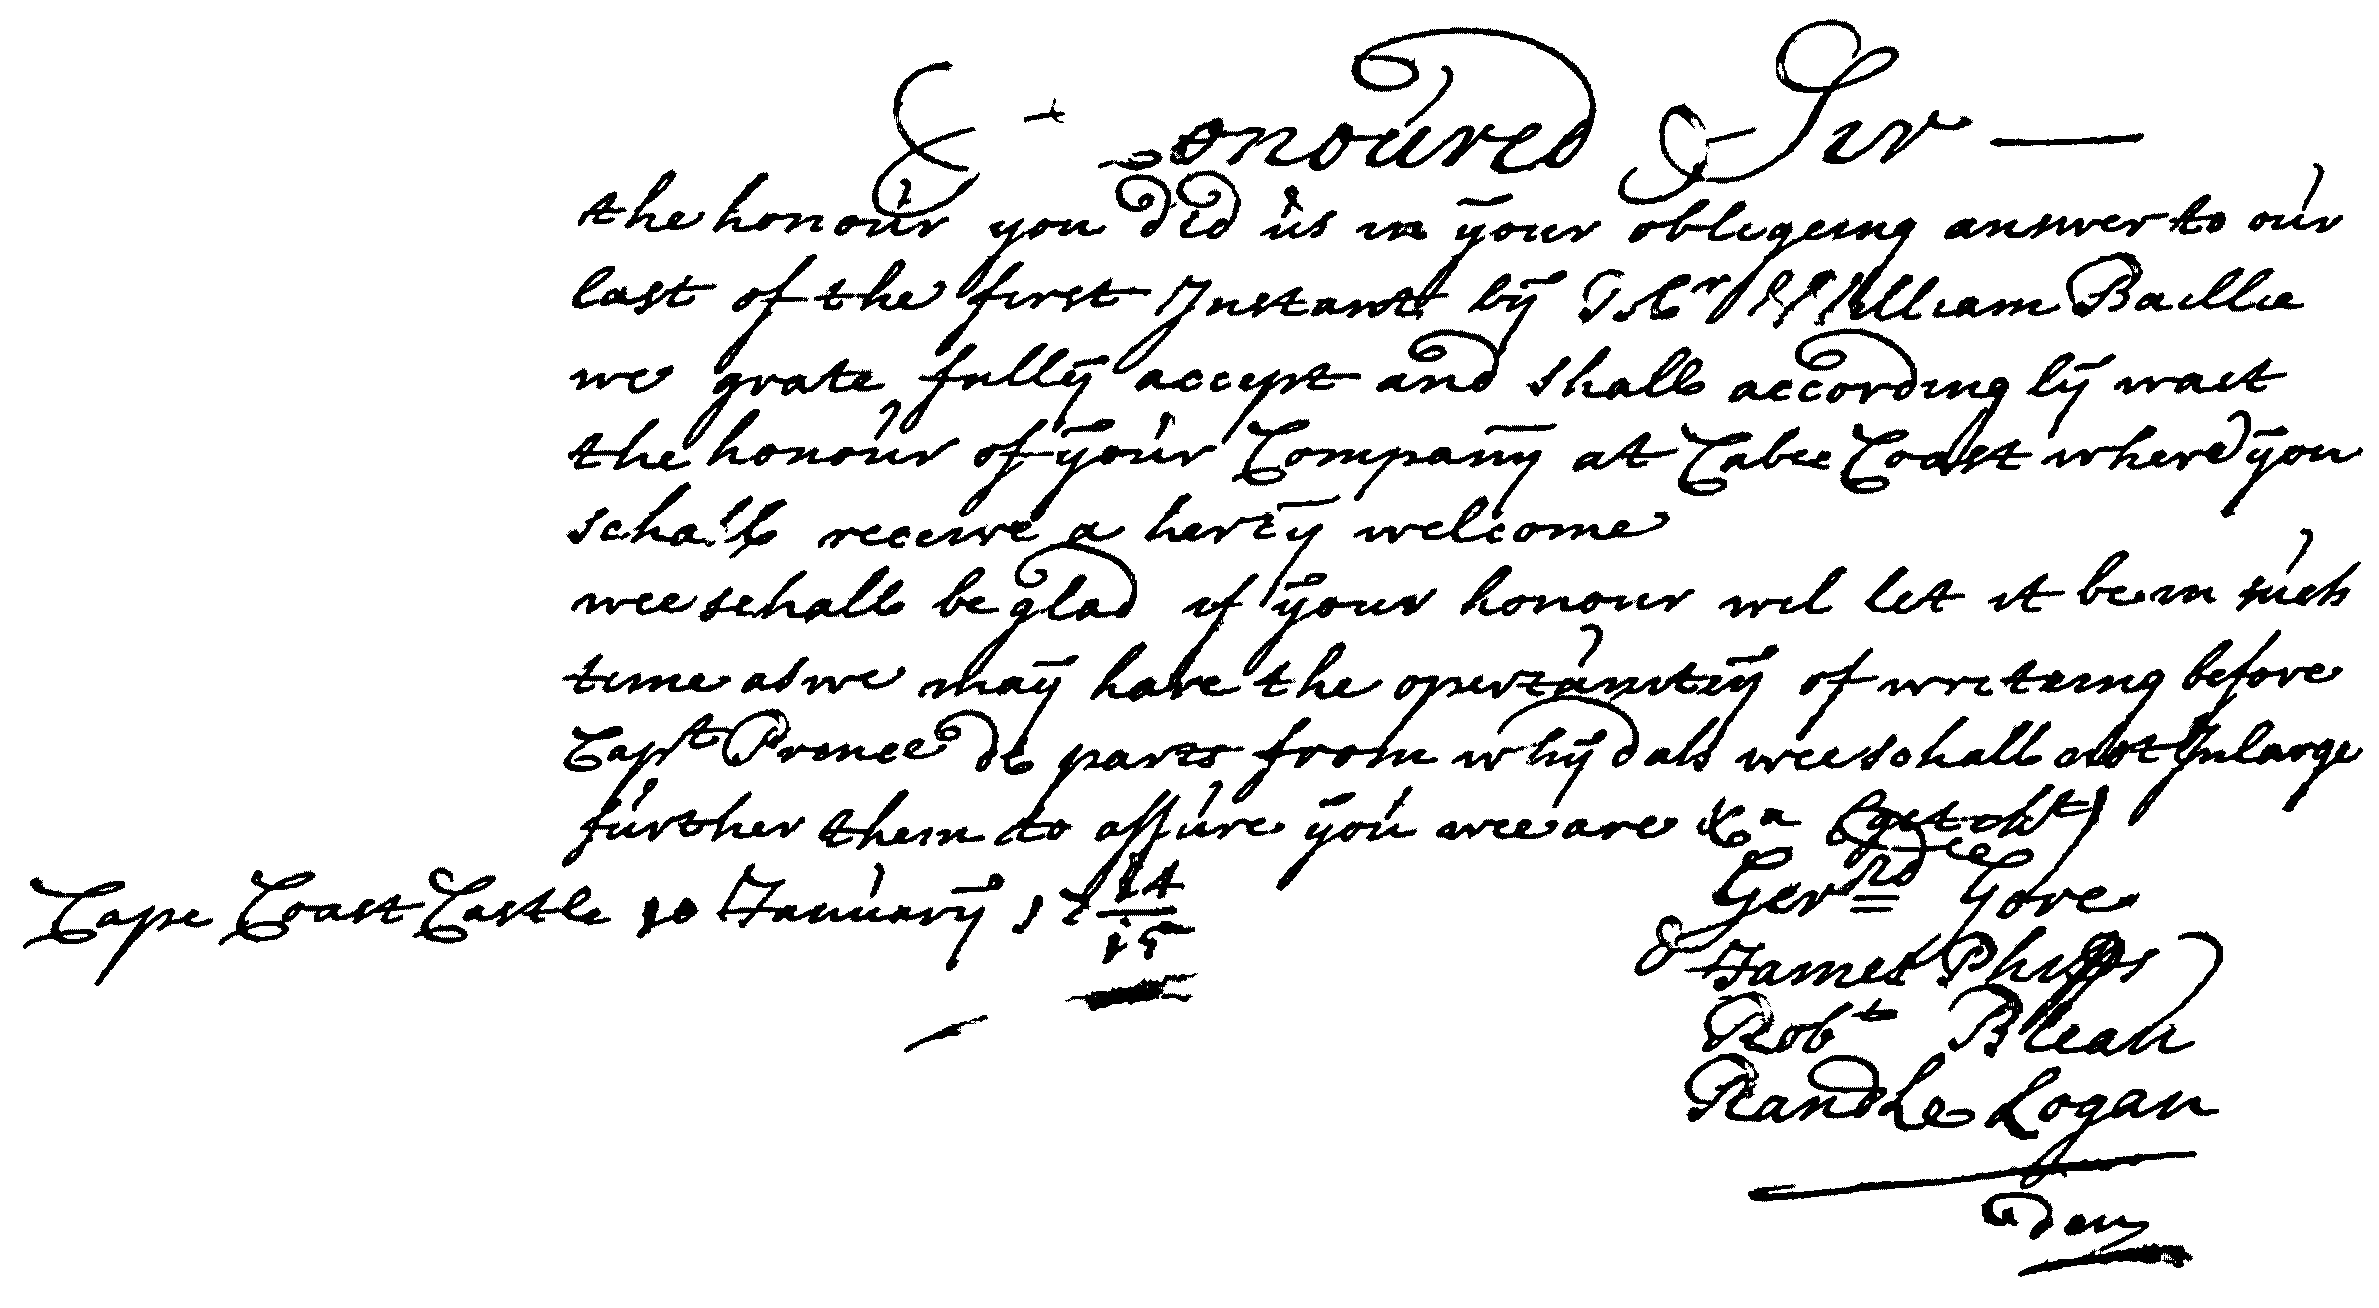 Honoured Sir —
the honour you did us in your obligeing answer to our
last of the first Instant by William Baillie
we grate fully accept and shall according ly wait
the honour of your Company at Cabee Coast where you
schall receive a herty welcome
wee schall be glad if your honour wil let it be in such
time as we may have the opertunitiy of writeing before
Capt Prence de parts from whydah wee schall not Inlarge
further them to assure you wee are &a (getekt)
Gerrd Gore
Cape Coast Castle 10 January 17 14/15
& James Phipps
Robt Blean
Randle Logan